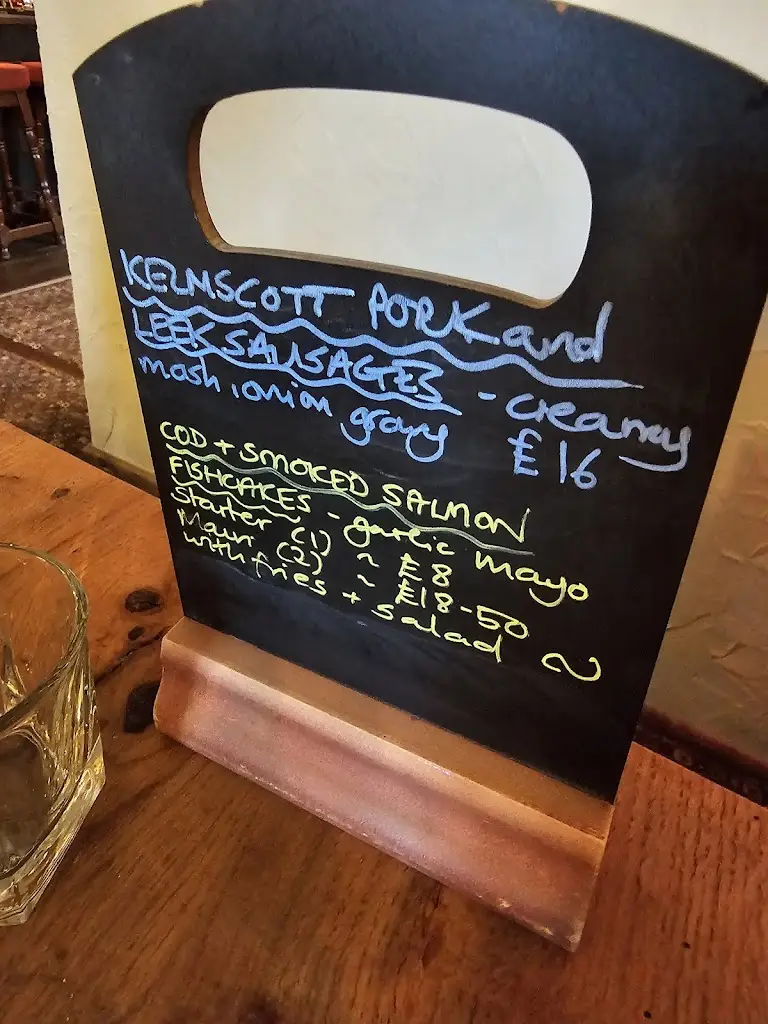 KELMSCOTT PORK and
LEEK SAUSAGES - creamy
mash, onion gravy £16
COD + SMOKED SALMON
FISHCAKES - garlic mayo
Starter (1) ~ £8
Main (2) ~ £18-50
with fries + salad ~